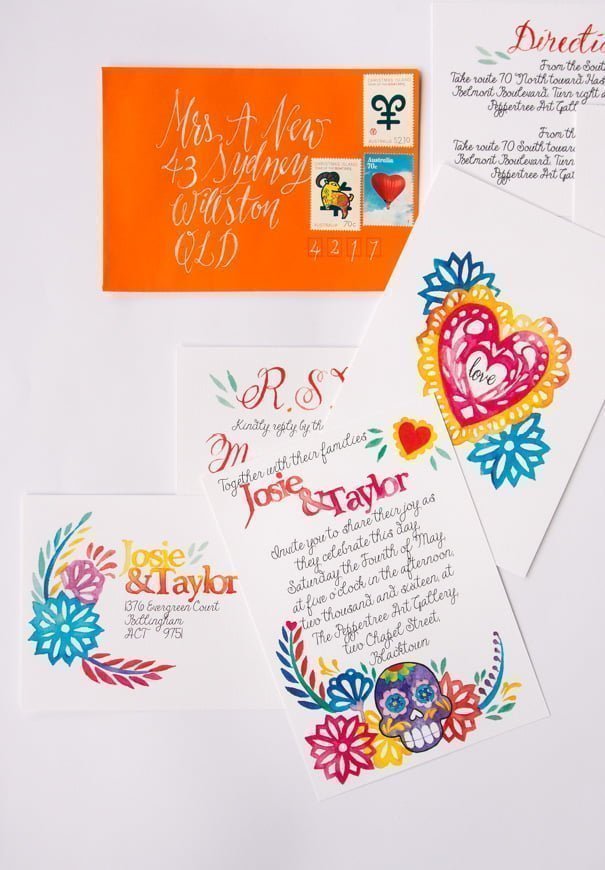 Mrs. A New
43 Sydney
Willston
QLD
4217
CHRISTMAS ISLAND
AUSTRALIA $2.10
CHRISTMAS ISLAND
AUSTRALIA 70c
Australia
70c
Directi
From the Sout
Take route 70 North toward Has
Belmont Boulevard. Turn right a
Peppertree Art Gall
From th
Take route 70 South towar
Belmont Boulevard. Turn
Peppertree Art Gal
love
R.S
Kindly reply by th
M
Together with their families
Josie
&Taylor
Invite you to share their joy as
they celebrate this day,
Saturday the Fourth of May,
at five o'clock in the afternoon,
two thousand and sixteen, at
The Peppertree Art Gallery,
two Chapel Street,
Blacktown
Josie
&Taylor
1376 Evergreen Court
Bottingham
ACT 9751